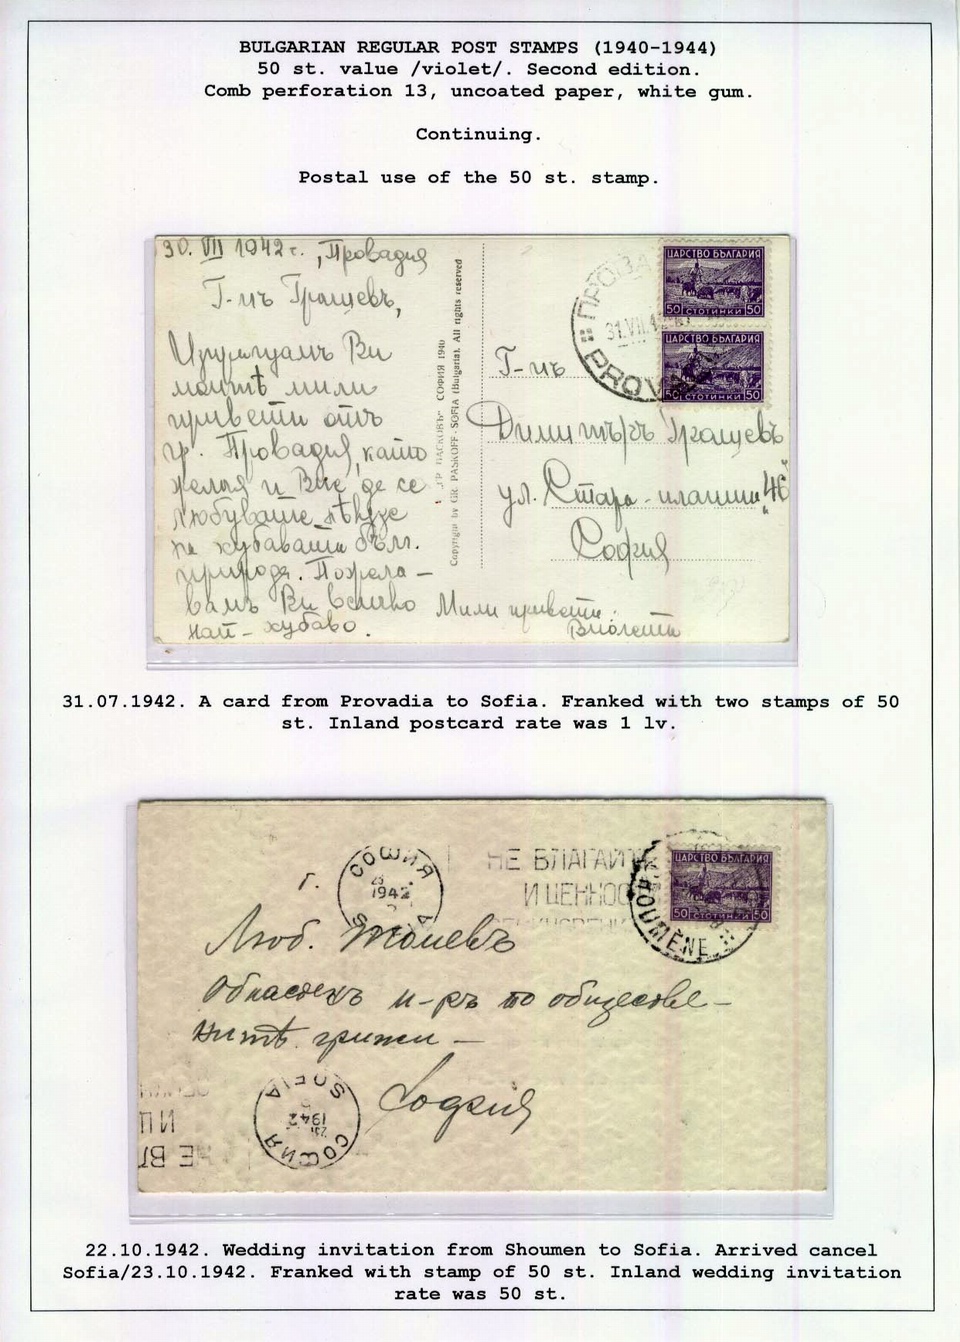 BULGARIAN REGULAR POST STAMPS (1940-1944)
50 st. value /violet/. Second edition.
Comb perforation 13, uncoated paper, white gum.
Continuing.
Postal use of the 50 st. stamp.
30. VII 1942 г., Провадия
Г-нъ Гращевъ,
Изпращамъ Ви
моитѣ мили
привети отъ
гр. Провадия, като
желая и Вие да се
любувате нѣкъде
на хубавата бълг.
природа. Пожела-
вамъ Ви всичко
най-хубаво.
Мили привети:
Виолета
ГР. ПАСКОВЪ - СОФИЯ 1940
Copyright by GR. PASKOFF - SOFIA (Bulgaria). All rights reserved
ПРОВА
31.VII.4
PROVA
ЦАРСТВО БЪЛГАРИЯ
50 СТОТИНКИ 50
ЦАРСТВО БЪЛГАРИЯ
50 СТОТИНКИ 50
Г-нъ
Димитъръ Гращевъ
ул. Стара-планина "46"
София
31.07.1942. A card from Provadia to Sofia. Franked with two stamps of 50
st. Inland postcard rate was 1 lv.
СОФИЯ
1942
НЕ ВЛАГАЙТ
И ЦЕННОС
OUMENE
ЦАРСТВО БЪЛГАРИЯ
50 СТОТИНКИ 50
г.
Люб.
по обществе-
нитѣ грижи -
София
SOFIA
1942
СОФИЯ
И ЦЕ
НЕ ВЛ
22.10.1942. Wedding invitation from Shoumen to Sofia. Arrived cancel
Sofia/23.10.1942. Franked with stamp of 50 st. Inland wedding invitation
rate was 50 st.